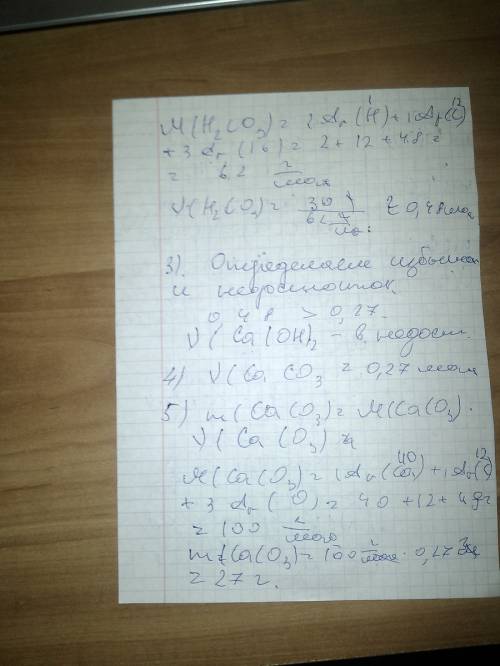 M(H₂CO₃) = 2Ar(H) + 1Ar(C)
+ 3Ar(16) = 2 + 12 + 48 =
= 62 г/моль
ν(H₂CO₃) = 30 г / 62 г/моль = 0,48 моль
3) Определяем избыток
и недостаток
0,48 > 0,27.
ν(Ca(OH)₂ - в недост.
4) ν(CaCO₃ = 0,27 моль
5) m(CaCO₃) = M(CaCO₃) ·
ν(CaCO₃)
M(CaCO₃) = 1Ar(Ca) + 1Ar(C)
+ 3Ar(O) = 40 + 12 + 48 =
= 100 г/моль
m(CaCO₃) = 100 г/моль · 0,27
= 27 г.